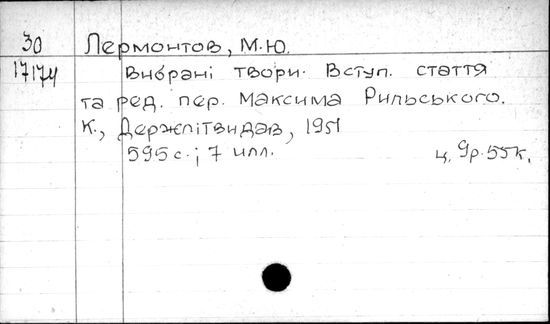 30 Лермонтов, М.Ю.
17174 Вибрані твори. Вступ. стаття
та ред. пер. Максима Рильського.
К., Держлітвидав, 1951
595 с.; 7 илл. ц. 9р.55к.